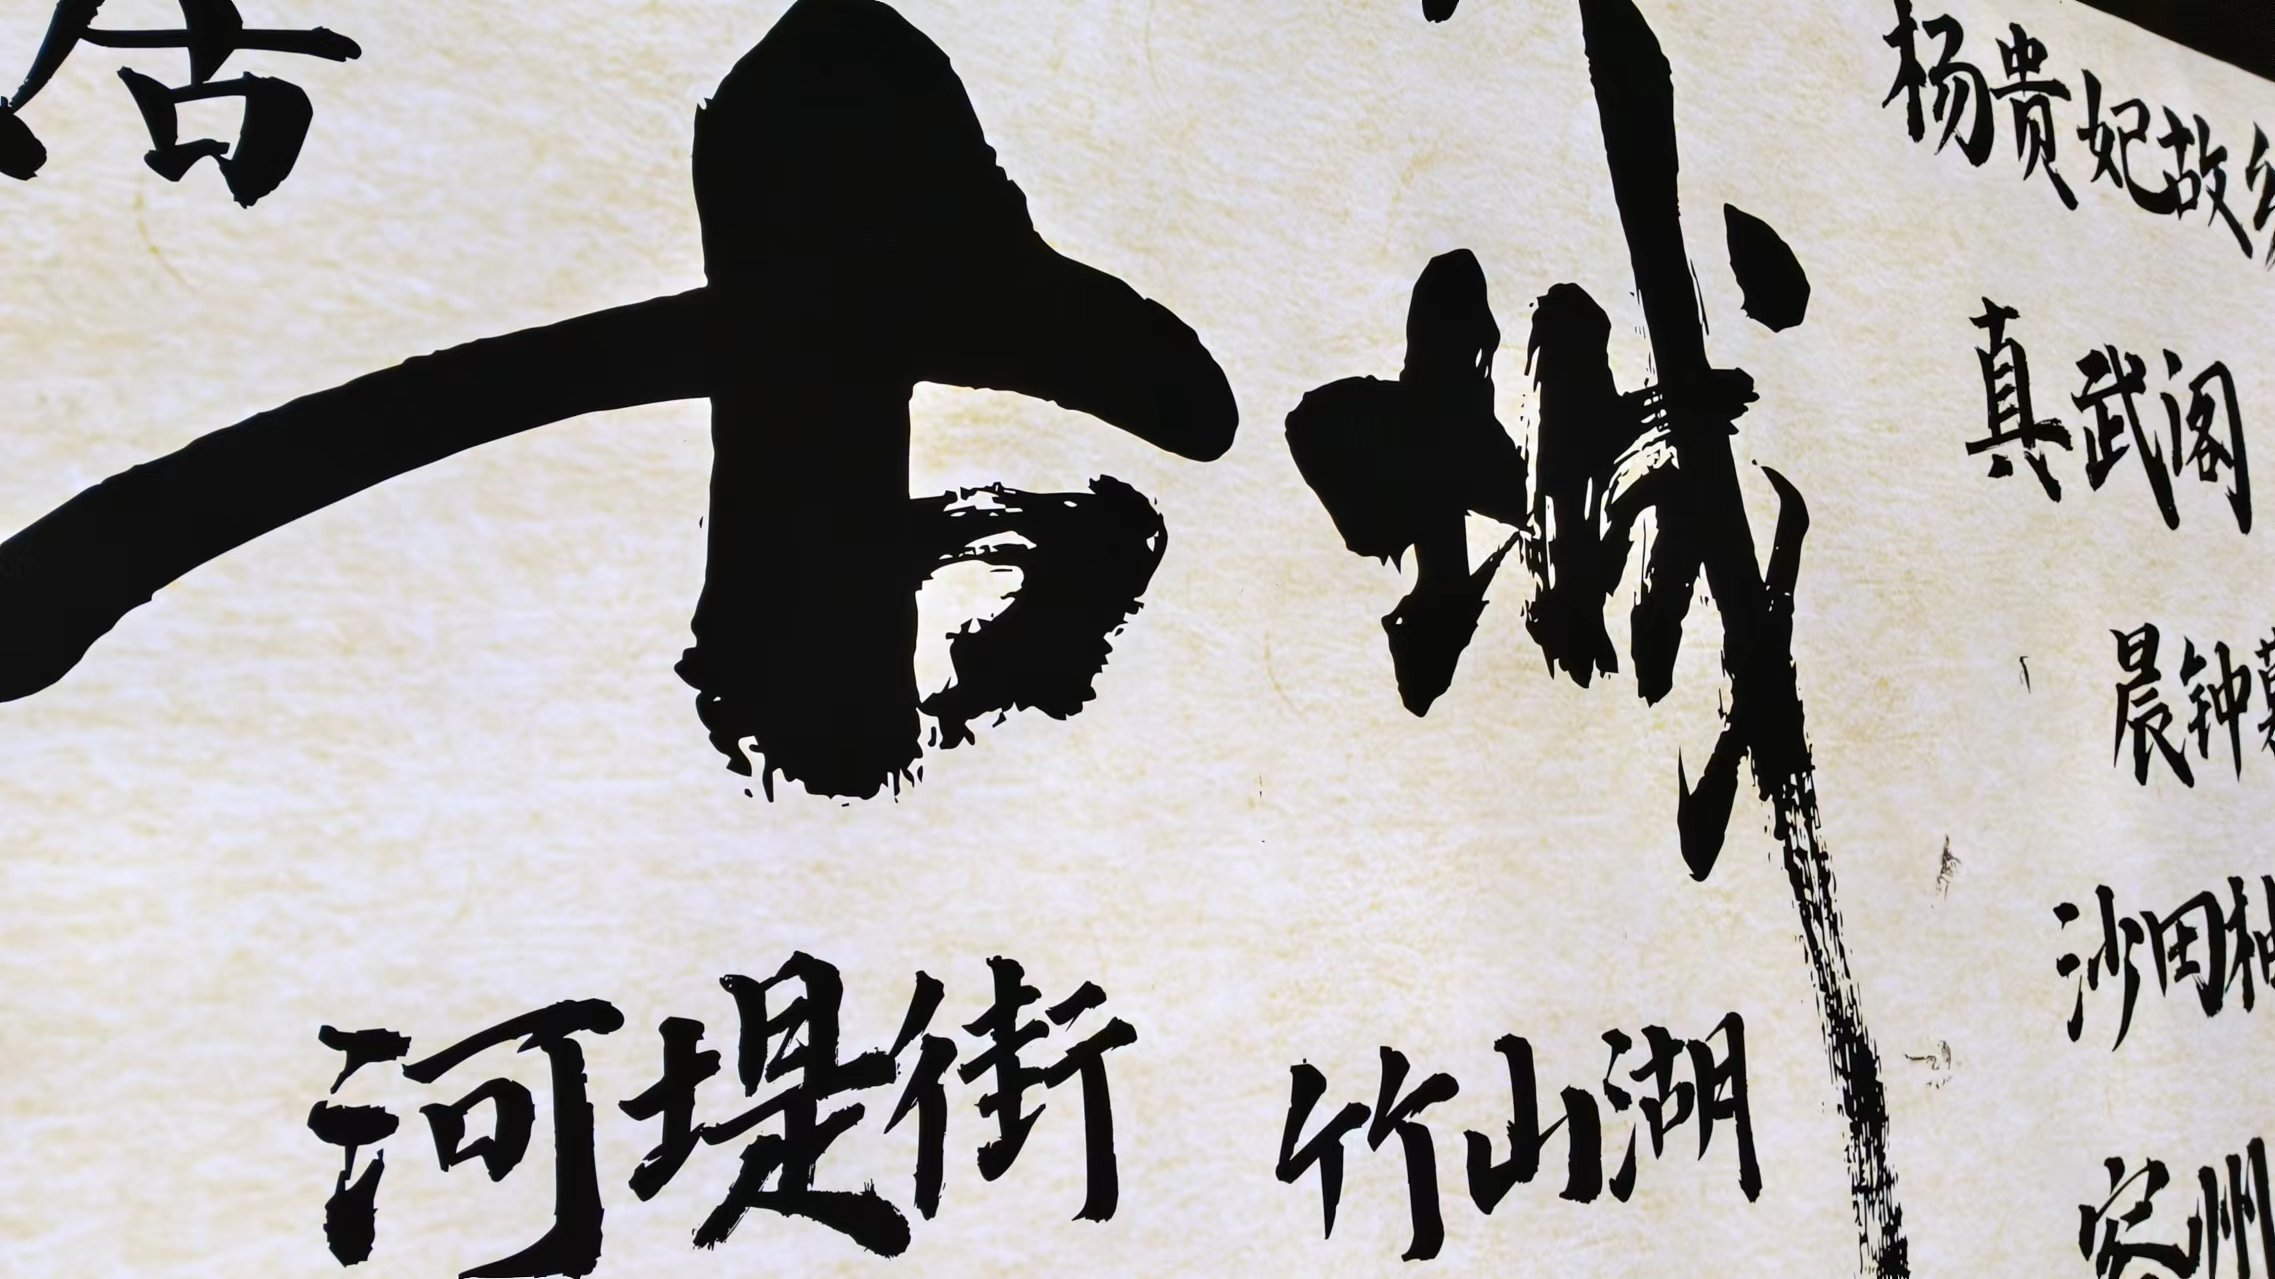 古城
河堤街
竹山湖
杨贵妃故
真武阁
晨钟
沙田柚
容州